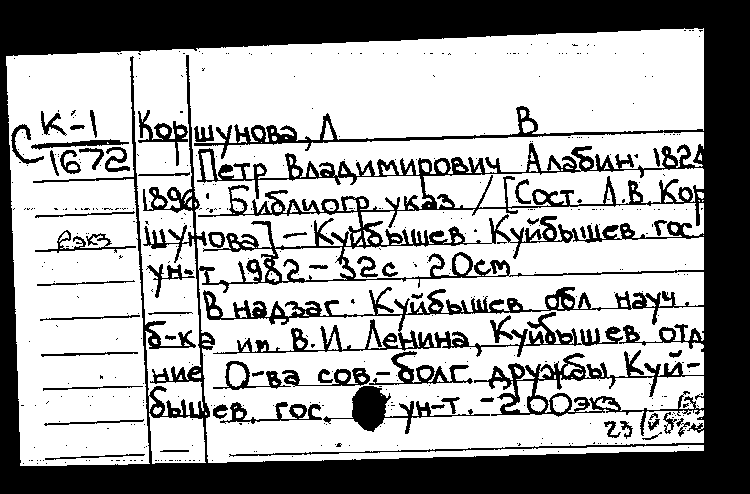 К-1 Коршунова, Л В
С 1672 Петр Владимирович Алабин; 1824
1896: Библиогр. указ. / [Сост. Л.В. Кор
2экз шунова]. – Куйбышев: Куйбышев. гос.
ун-т, 1982. – 32с; 20см.
В надзаг: Куйбышев. обл. науч.
б-ка им. В.И. Ленина, Куйбышев. отд
ние О-ва сов.-болг. дружбы, Куй-
бышев. гос. ун-т. – 200экз.
23